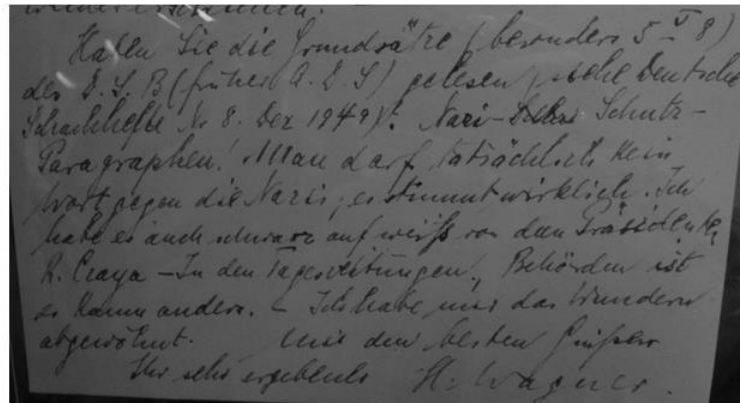 Haben Sie die Grundsätze (besonders 5 8)
des D. S. B (früher A. D. S) gelesen (siehe Deutsche
Schachhefte Nr 8. Dez 1949)? Nazi- Schutz-
Paragraphen! Man darf tatsächlich kein
Wort gegen die Nazis, es stimmt wirklich. Ich
habe es auch schwarz auf weiß von dem Präsidenten
In den Tageszeitungen, Behörden ist
es kaum anders. - Ich habe mir das Wundern
abgewöhnt. Mit den besten Grüßen
Ihr sehr ergebener H. Wagner.